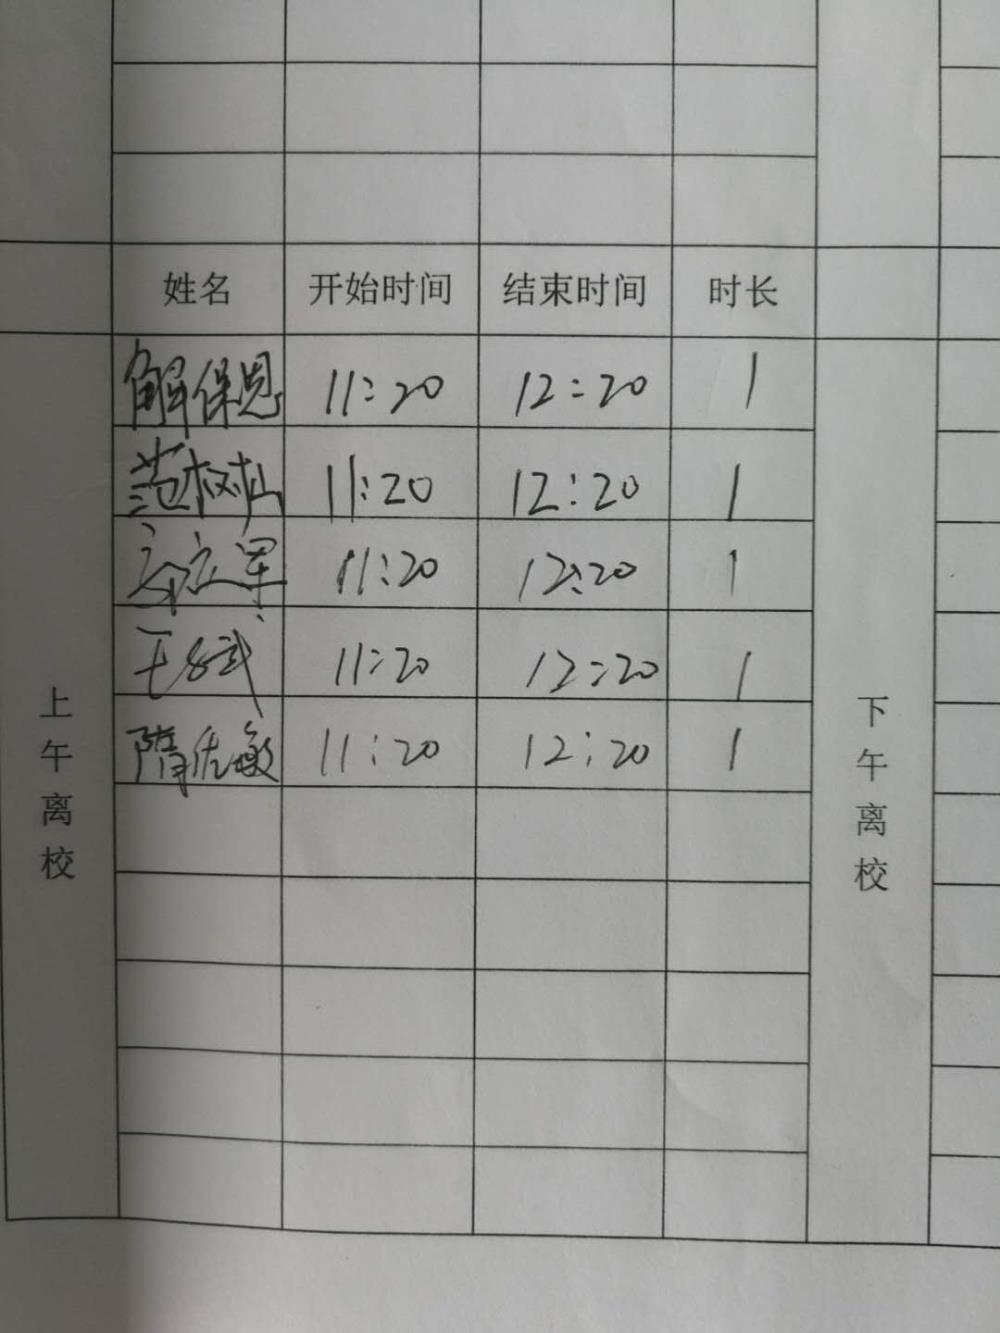 姓名 开始时间 结束时间 时长
解保恩 11:20 12:20 1
范树山 11:20 12:20 1
立军 11:20 12:20 1
王 武 11:20 12:20 1
隋佐敏 11:20 12:20 1
上午离校
下午离校